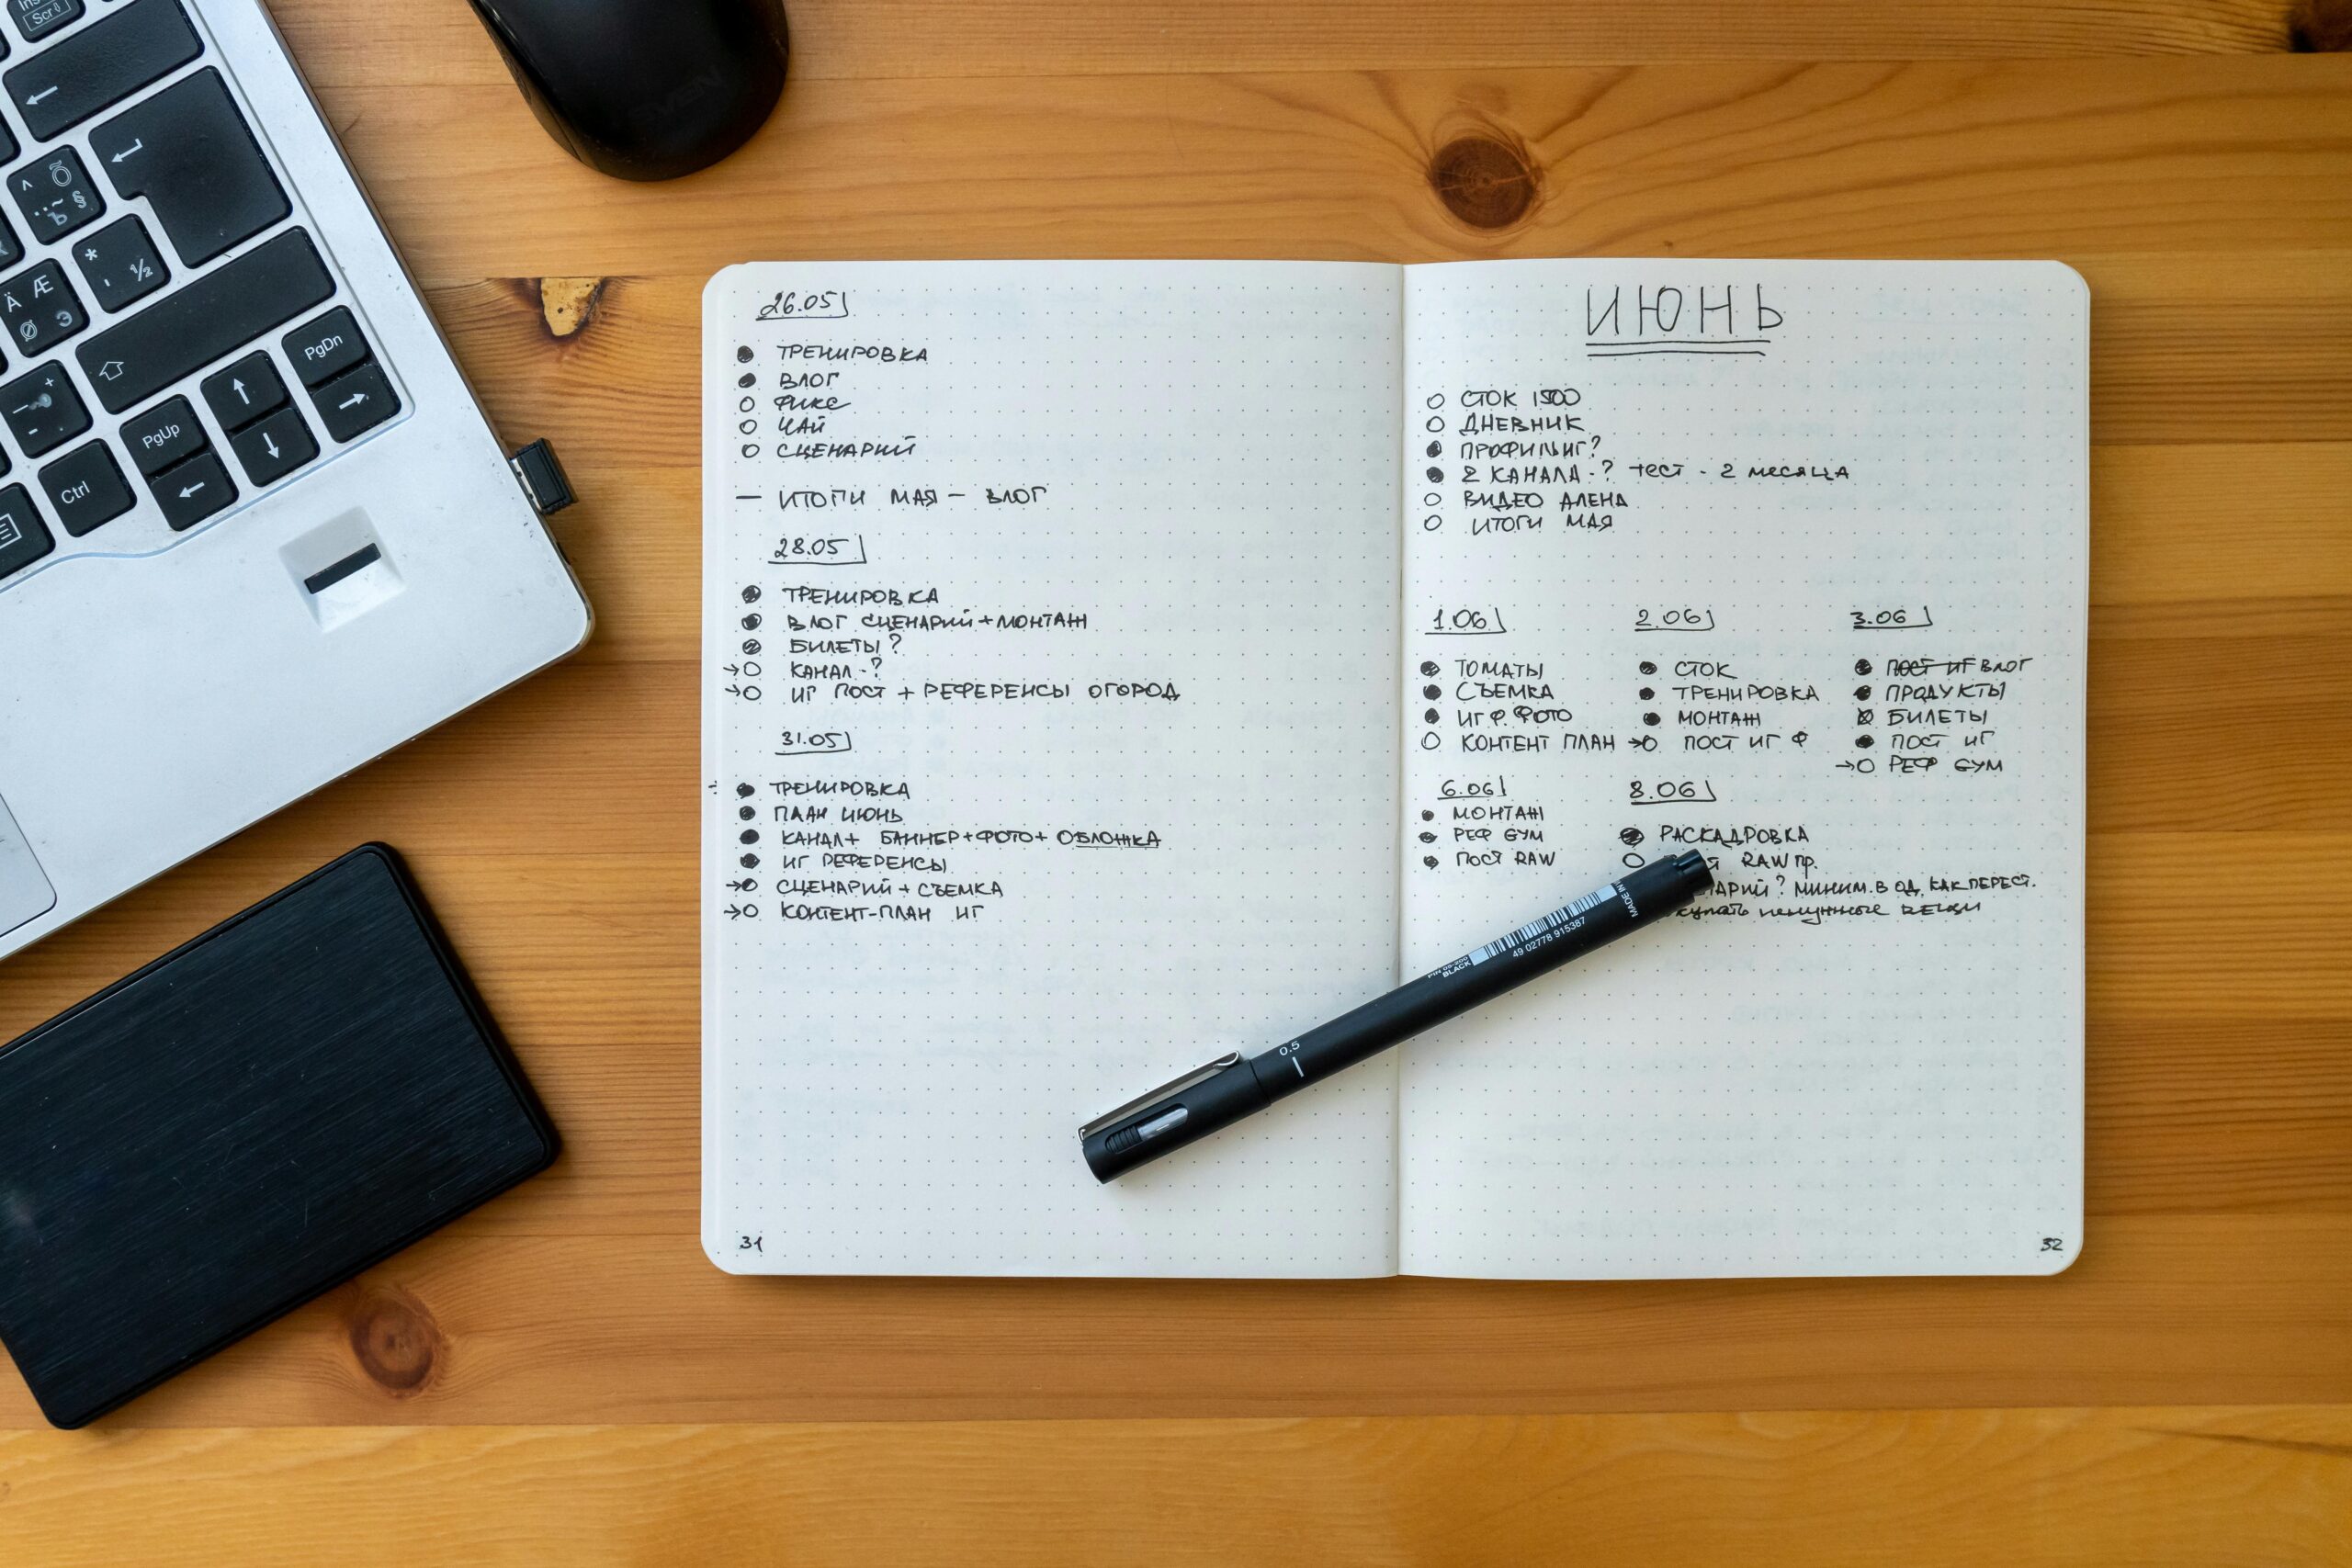 Ins
Scr
^ Õ
~ § Ъ
* ' ½
Ä Æ
Ø Э
PgDn
PgUp
Ctrl
26.05
ТРЕНИРОВКА
ВЛОГ
ФИКС
ЧАЙ
СЦЕНАРИЙ
— ИТОГИ МАЯ — ВЛОГ
28.05
ТРЕНИРОВКА
ВЛОГ СЦЕНАРИЙ+МОНТАЖ
БИЛЕТЫ?
→ КАНАЛ-?
→ ИГ ПОСТ + РЕФЕРЕНСЫ ОГОРОД
31.05
ТРЕНИРОВКА
ПЛАН ИЮНЬ
КАНАЛ+ БАННЕР+ФОТО+ ОБЛОЖКА
ИГ РЕФЕРЕНСЫ
→ СЦЕНАРИЙ + СЪЕМКА
→ КОНТЕНТ-ПЛАН ИГ
31
ИЮНЬ
СТОК 1500
ДНЕВНИК
ПРОФИЛЬ ИГ?
2 КАНАЛА-? ТЕСТ - 2 МЕСЯЦА
ВИДЕО АЛЕНА
ИТОГИ МАЯ
1.06
ТОМАТЫ
СЪЕМКА
ИГ Ф. ФОТО
КОНТЕНТ ПЛАН
2.06
СТОК
ТРЕНИРОВКА
МОНТАЖ
→ ПОСТ ИГ Ф
3.06
ПОСТ ИГ ВЛОГ
ПРОДУКТЫ
БИЛЕТЫ
ПОСТ ИГ
→ РЕФ GYM
6.06
МОНТАЖ
РЕФ GYM
ПОСТ RAW
8.06
РАСКАДРОВКА
RAW пр.
МИНИМ. В ОД. КАК ПЕРЕСТ.
ненужные вещи
32
MADE IN
PIN 05-200
BLACK
49 02778 915387
0.5